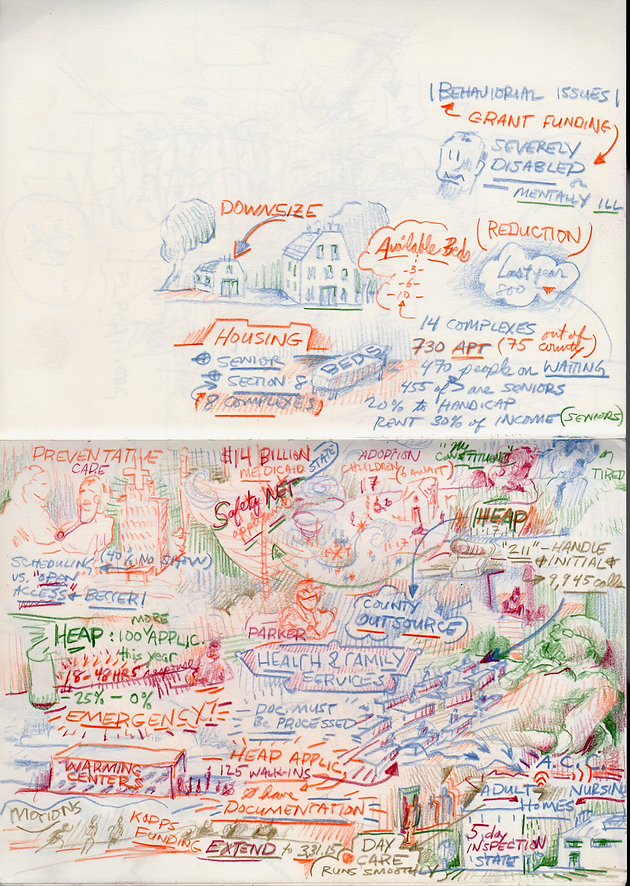 BEHAVIORIAL ISSUES
GRANT FUNDING
SEVERELY
DISABLED
or
MENTALLY ILL
DOWNSIZE
Available Beds
-3-
-6-
-10-
(REDUCTION)
Last year
800
HOUSING
SENIOR
SECTION 8
8 COMPLEXES
BEDS
14 COMPLEXES
730 APT (75 out of county)
470 people on WAITING
455 of are SENIORS
20% to HANDICAP
RENT 30% of INCOME (SENIORS)
PREVENTATIVE
CARE
SCHEDULING (40% NO SHOW)
VS. "OPEN"
ACCESS = BETTER!
$14 BILLION
MEDICAID
STATE
Safety NET
ADOPTION
CHILDREN (6 AWAIT)
17
"My
CONSTITUENTS"
TIRED
HEAP
11·17
"211" - HANDLE
INITIAL
9,945 calls
COUNTY
OUTSOURCE
PARKER
HEALTH & FAMILY
SERVICES
MORE
HEAP: 100 APPLIC.
this year
18-48 HRS
- 25% - 0%
EMERGENCY!
DOC. MUST
BE PROCESSED
WARMING
CENTERS
HEAP APPLIC.
125 WALK-INS
to have
DOCUMENTATION
MOTIONS
KAPPS
FUNDING
EXTEND to 3.31.15
DAY
CARE
RUNS SMOOTHLY
A.C.C.
ADULT
HOMES
NURSING
5 day
INSPECTION
STATE